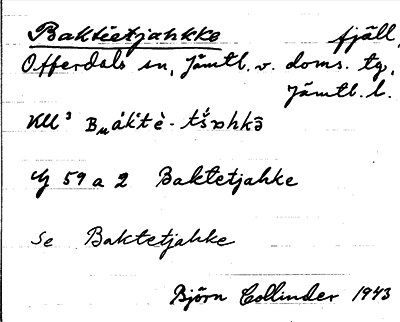 Baktietjahkke fjäll,
Offerdals sn, Jämtl. v. doms. tg,
Jämtl. l.
KU³ Bᵤáktè-tśɒhkə̂
Y 59 a 2 Baktetjahke
Se Baktetjahke
Björn Collinder 1943